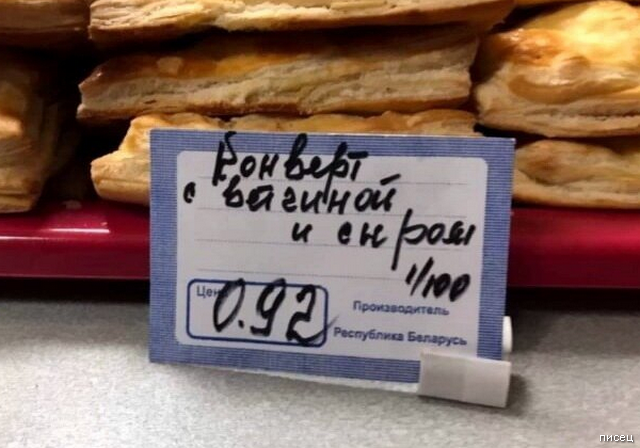 Конверт
с вагиной
и сыром
1/100
Цена 0.92
Производитель
Республика Беларусь
писец